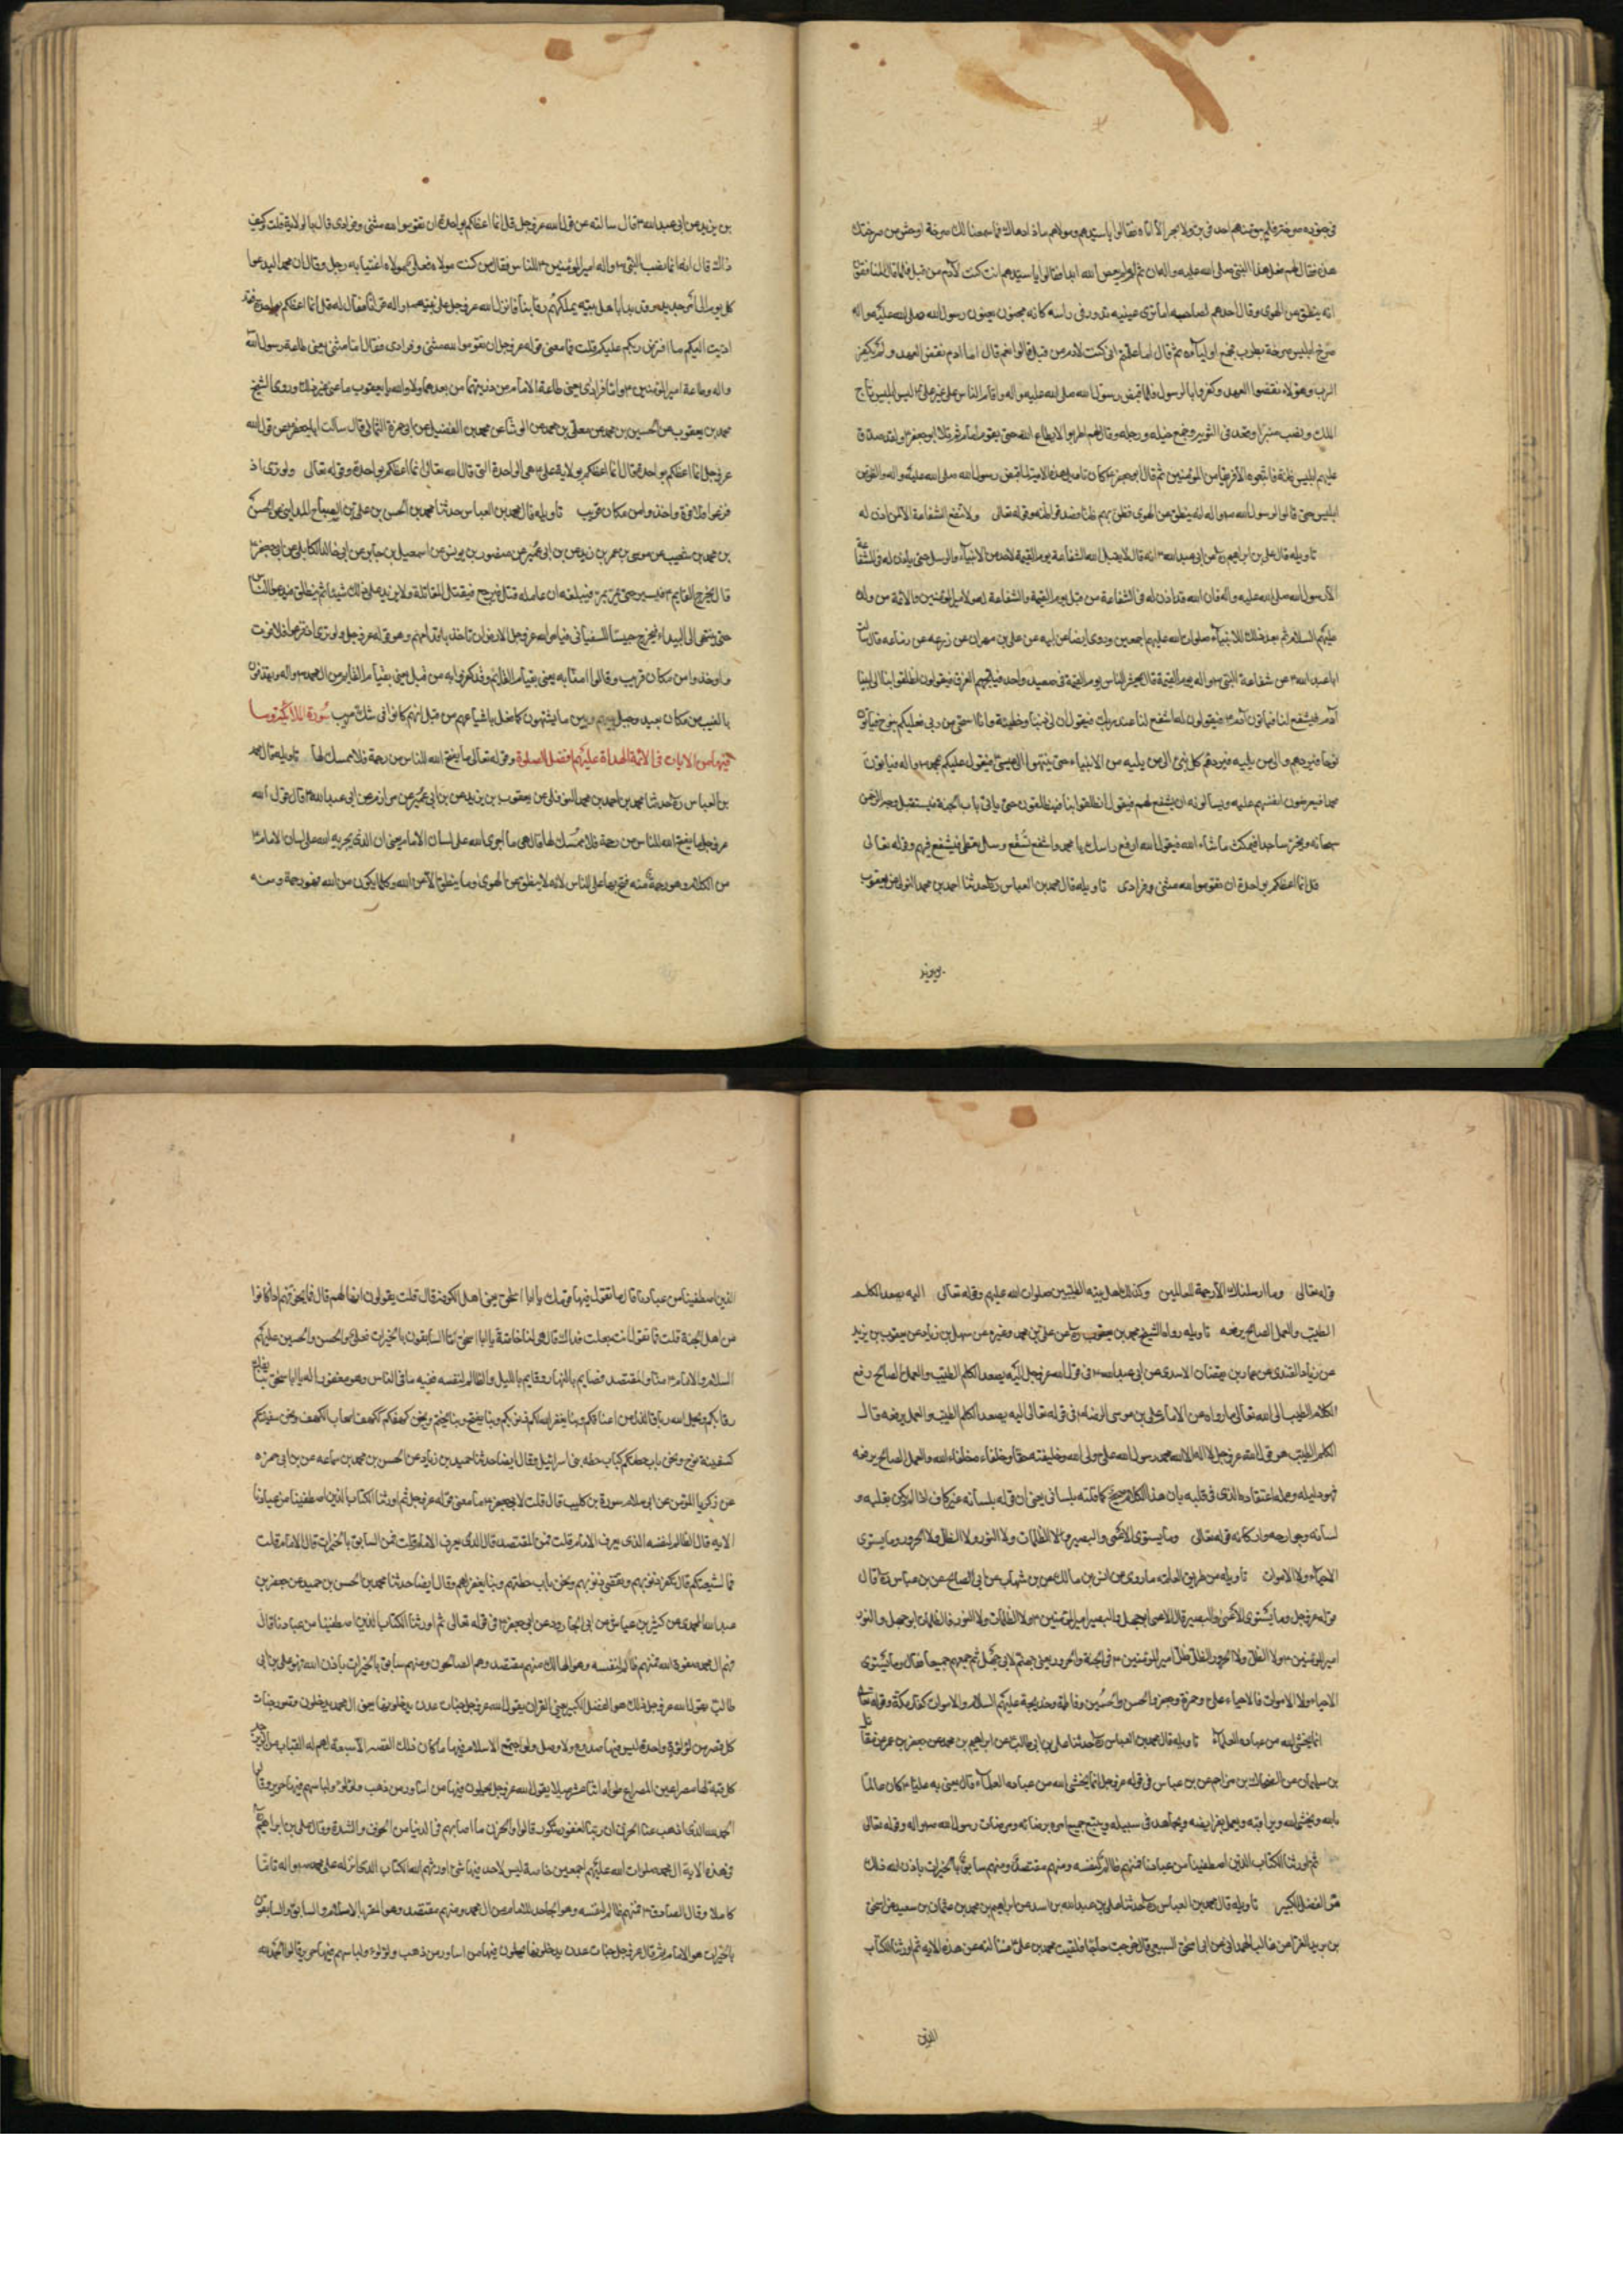 في جنوده صرخة فلم يبق منهم احد في بر ولا بحر الا اتاه فقالوا يا سيدهم ومولاهم ماذا دهاك فما سمعنا لك صرخة اوحش من صرختك
هذه فقال لهم فعل هذا النبي صلى الله عليه واله ان تم لم يعص الله ابدا فقالوا يا سيدهم انت كنت لآدم من قبل فلما قال المنافقون
انه ينطق عن الهوى وقال احدهم لصاحبه اما ترى عينيه تدور في راسه كانه مجنون يعنون رسول الله صلى الله عليه واله
صرخ ابليس صرخة بطرب فجمع اوليآءه ثم قال اما علمتم اني كنت لادم من قبل قالوا نعم قال اما ادم نقض العهد ولم يكفر
الرب وهؤلاء نقضوا العهد وكفروا بالرسول فلما قبض رسول الله صلى الله عليه واله واقام الناس على غير علي ٤ لبس ابليس تاج
الملك ونصب منبرا وقعد في وجمع خيله ورجله وقال لهم اطربوا لا يطاع الله حتى يقوم امام ثم تلا ابو جعفر ٤ ولقد صدق
عليهم ابليس ظنه فاتبعوه الا فريقا من المؤمنين ثم قال ابو جعفر ٤ كان تاويل هذه الاية لما قبض رسول الله صلى الله عليه واله والظن من
ابليس حتى قالوا لرسول الله ص واله انه ينطق عن الهوى فظن بهم ظنا فصدقوا ظنه وقوله تعالى ولا تنفع الشفاعة الا لمن اذن له
تاويله قال علي بن ابراهيم ره عن ابي عبدالله ٤ انه قال لا يقبل الله الشفاعة يوم القيمة لاحد من الانبيآء والرسل حتى ياذن له في الشفاعة
الا رسول الله صلى الله عليه واله فان الله قد اذن له في الشفاعة من قبل يوم القيمة والشفاعة له ولامير المؤمنين والائمة من ولده
عليهم السلام ثم بعد ذلك للانبيآء صلوات الله عليهم اجمعين وروى ايضا عن ابيه عن علي بن مهران عن زرعه عن سماعه قال سالت
ابا عبدالله ٤ عن شفاعة النبي ص واله يوم القيمة قال يحشر الناس يوم القيمة في صعيد واحد فيلجمهم العرق فيقولون انطلقوا بنا الى ابينا
آدم فيشفع لنا فياتون آدم ٤ فيقولون له اشفع لنا عند ربك فيقول ان لي ذنبا وخطيئة وانا استحي من ربي فعليكم بنوح فياتون
نوحا فيردهم الى من يليه فيردهم كل نبي الى من يليه من الانبياء حتى ينتهوا الى عيسى فيقول عليكم بمحمد ص واله فياتون
محمدا فيعرضون انفسهم عليه ويسألونه ان يشفع لهم فيقول انطلقوا بنا فينطلقون حتى ياتي باب الجنة فيستقبل وجه الرحمن
سبحانه ويخر ساجدا فيمكث ما شآء الله فيقول الله ارفع راسك يا محمد واشفع تشفع وسل تعطى فيشفع فيهم وقوله تعالى
قل انما اعظكم بواحدة ان تقوموا لله مثنى وفرادى تاويله قال محمد بن العباس ره حدثنا احمد بن محمد النوفلي عن يعقوب
بن يزيد
بن يزيد عن ابي عبدالله ٤ قال سالته عن قول الله عز وجل قل انما اعظكم بواحدة ان تقوموا لله مثنى وفرادى قال بالولاية قلت وكيف
ذلك قال انه لما نصب النبي ص واله امير المؤمنين ٤ للناس فقال من كنت مولاه فعلي مولاه اغتابه رجل وقال ان محمدا ليدعوا
كل يوم الى امر جديد وقد بدا باهل بيته يملكهم رقابنا فانزل الله عز وجل على نبيه ص واله قرآنا فقال له قل انما اعظكم بواحدة فقد
اديت اليكم ما افترض ربكم عليكم قلت فما معنى قوله عز وجل ان تقوموا لله مثنى وفرادى فقال اما مثنى يعني طاعة رسول الله
واله وطاعة امير المؤمنين ٤ واما فرادى يعني طاعة الامام من ذريتهما من بعدهما ولا والله يا يعقوب ما عنى غير ذلك وروى الشيخ
محمد بن يعقوب عن الحسين بن محمد عن معلى بن محمد عن الوشا عن محمد بن الفضيل عن ابي حمزة الثمالي قال سالت ابا جعفر عن قول الله
عز وجل انما اعظكم بواحدة فقال انما اعظكم بولاية علي ٤ هي الواحدة التي قال الله تعالى انما اعظكم بواحدة وقوله تعالى ولو ترى اذ
فزعوا فلا فوت واخذوا من مكان قريب تاويله قال محمد بن العباس حدثنا محمد بن الحسن بن علي بن الصباح المدايني عن الحسن
بن محمد بن شعيب عن موسى بن عمر بن زيد عن بن ابي عمير عن منصور بن يونس عن اسمعيل بن جابر عن ابي خالد الكابلي عن ابي جعفر ٤
قال يخرج القايم ٤ فيسير حتى يمر بمر فيبلغه ان عامله قتل فيرجع فيقتل المقاتلة ولا يزيد على ذلك شيئا ثم ينطلق فيدعو الناس
حتى ينتهي الى البيداء فيخرج جيشا للسفياني فيامر الله عز وجل الارض ان تاخذ باقدامهم وهو قوله عز وجل ولو ترى اذ فزعوا فلا فوت
واخذوا من مكان قريب وقالوا امنا به يعني بقيام القائم وقد كفروا به من قبل يعني بقيام القايم من آل محمد ص واله ويقذفون
بالغيب من مكان بعيد وحيل بينهم وبين ما يشتهون كما فعل باشياعهم من قبل انهم كانوا في شك مريب سورة الملائكة وما
فيها من الايات في الائمة الهداة عليهم افضل الصلوة وقوله تعالى ما يفتح الله للناس من رحمة فلا ممسك لها تاويله قال محمد
بن العباس ره حدثنا محمد بن احمد بن محمد النوفلي عن يعقوب بن يزيد عن بن ابي عمير عن مرازم عن ابي عبدالله ٤ قال قول الله
عز وجل ما يفتح الله للناس من رحمة فلا ممسك لها قال هي ما اجرى الله على لسان الامام يعني ان الذي يجريه الله على لسان الامام ٤
من الكلام وهو رحمة منه فتح بها على الناس لانه لا ينطق عن الهوى وما ينطق الا عن الله وكلما يكون من الله فهو رحمة ومنه
قوله تعالى وما ارسلناك الا رحمة للعالمين وكذلك اهل بيته الطيبين صلوات الله عليهم وقوله تعالى اليه يصعد الكلم
الطيب والعمل الصالح يرفعه تاويله رواه الشيخ محمد بن يعقوب ره عن علي بن محمد وغيره عن سهل بن زياد عن يعقوب بن يزيد
عن زياد القندي عن عمار بن يقضان الاسدي عن ابي عبدالله ٤ في قول الله عز وجل اليه يصعد الكلم الطيب والعمل الصالح رفع
الكلام الطيب الى الله تعالى ما رواه عن الامام علي بن موسى الرضا ٤ في قوله تعالى اليه يصعد الكلم الطيب والعمل يرفعه قال
الكلم الطيب هو قول الله عز وجل لا اله الا الله محمد رسول الله علي ولي الله وخليفته حقا وخلفاءه خلفاء الله والعمل الصالح يرفعه
فهو دليله وعمله اعتقاده الذي في قلبه بان هذا الكلام صحيح كما قلته بلساني يعني ان قوله بلسانه غير كاف اذا لم يكن بقلبه و
لسانه وجوارحه واركانه قوله تعالى وما يستوي الاعمى والبصير ولا الظلمات ولا النور ولا الظل ولا الحرور وما يستوي
الاحياء ولا الاموات تاويله من طريق العامة ما روي عن انس بن مالك عن بن شهاب عن ابي الصالح عن بن عباس ره قال
قوله عز وجل وما يستوي الاعمى والبصير قال الاعمى ابو جهل والبصير امير المؤمنين ٤ ولا الظلمات ولا النور فالظلمات ابو جهل والنور
امير المؤمنين ٤ ولا الظل ولا الحرور الظل ظل امير المؤمنين ٤ في الجنة والحرور يعني جهنم لابي جهل ثم جمعهم جميعا فقال وما يستوي
الاحياء ولا الاموات فالاحياء علي وحمزة وجعفر والحسن والحسين وفاطمة وخديجة عليهم السلام والاموات كفار مكة وقوله تعالى
انما يخشى الله من عباده العلمآء تاويله قال محمد بن العباس ره حدثنا علي بن ابي طالب عن ابراهيم بن محمد عن جعفر بن عمر عن مقاتل
بن سليمان عن الضحاك بن مزاحم عن بن عباس في قوله عز وجل انما يخشى الله من عباده العلمآء قال يعني به عليا ٤ كان عالما
بالله ويخشى الله ويراقبه ويعمل بفرايضه ويجاهد في سبيله ويتبع جميع امره برضائه ومرضات رسول الله ص واله وقوله تعالى
ثم اورثنا الكتاب الذين اصطفينا من عبادنا فمنهم ظالم لنفسه ومنهم مقتصد ومنهم سابق بالخيرات باذن الله ذلك
هو الفضل الكبير تاويله قال محمد بن العباس ره حدثنا علي بن عبدالله بن اسد عن ابراهيم بن محمد عن عثمان بن سعيد عن اسحق
بن يزيد الفرا عن غالب الهمداني عن ابي اسحق السبيعي قال خرجت حاجا فلقيت محمد بن علي ٤ فسالته عن هذه الاية ثم اورثنا الكتاب
الذين
الذين اصطفينا من عبادنا فقال ما تقول فيها قومك يا ابا اسحق يعني اهل الكوفة قال قلت يقولون انها لهم قال فما يخوفهم اذا كانوا
من اهل الجنة قلت فما تقول انت جعلت فداك قال هي لنا خاصة يا ابا اسحق اما السابقون بالخيرات فعلي والحسن والحسين عليهم
السلام والامام ٤ منا والمقتصد فصايم بالنهار وقايم بالليل والظالم لنفسه ففيه ما في الناس وهو مغفور له يا ابا اسحق بنا يفك الله
رقابكم ويحل الله رباق الذل من اعناقكم وبنا يغفر الله لكم ذنوبكم وبنا يفتح وبنا يختم ونحن كهفكم ككهف اصحاب الكهف ونحن سفينتكم
كسفينة نوح ونحن باب حطتكم كباب حطه بني اسرائيل وقال ايضا حدثنا حميد بن زياد عن الحسن بن محمد بن سماعه عن بن ابي حمزه
عن زكريا المؤمن عن ابي سلام سورة بن كليب قال قلت لابي جعفر ٤ ما معنى قوله عز وجل ثم اورثنا الكتاب الذين اصطفينا من عبادنا
الايه قال الظالم لنفسه الذي يعرف الامام قلت فمن المقتصد قال الذي يعرف الامام قلت فمن السابق بالخيرات قال الامام قلت
فما لشيعتكم قال يكفر ذنوبهم ويقضي ديونهم ونحن باب حطتهم وبنا يغفر لهم وقال ايضا حدثنا محمد بن الحسن بن حميد عن جعفر بن
عبدالله المحمدي عن كثير بن عياش عن ابي الجارود عن ابي جعفر ٤ في قوله تعالى ثم اورثنا الكتاب الذين اصطفينا من عبادنا قال
فهم آل محمد صفوة الله فمنهم ظالم لنفسه وهو الهالك ومنهم مقتصد وهم الصالحون ومنهم سابق بالخيرات باذن الله فهو علي بن ابي
طالب يقول الله عز وجل ذلك هو الفضل الكبير يعني القران يقول الله عز وجل جنات عدن يدخلونها يعني آل محمد يدخلون قصور جنات
كل قصر من لؤلؤة واحدة ليس فيها صدع ولا وصل ولو اجتمع الاسلام فيها ما كان ذلك القصر الا سعة لهم له القباب من الزبرجد
كل قبة لها مصراعين المصراع طوله اثنا عشر ميلا يقول الله عز وجل يحلون فيها من اساور من ذهب ولؤلؤا ولباسهم فيها حرير وقالوا
الحمد لله الذي اذهب عنا الحزن ان ربنا لغفور شكور قالوا والحزن ما اصابهم في الدنيا من الخوف والشدة وقال علي بن ابراهيم
في هذه الاية آل محمد صلوات الله عليهم اجمعين خاصة ليس لاحد فيها شئ اورثهم الله الكتاب الذي انزله على محمد ص واله تاما
كاملا وقال الصادق ٤ فمنهم ظالم لنفسه وهو الجاحد للامام من آل محمد ومنهم مقتصد وهو المقر بالاسلام والسابق والسابقون
بالخيرات هو الامام ثم قال عز وجل جنات عدن يدخلونها يحلون فيها من اساور من ذهب ولؤلؤا ولباسهم فيها حرير وقالوا الحمد لله